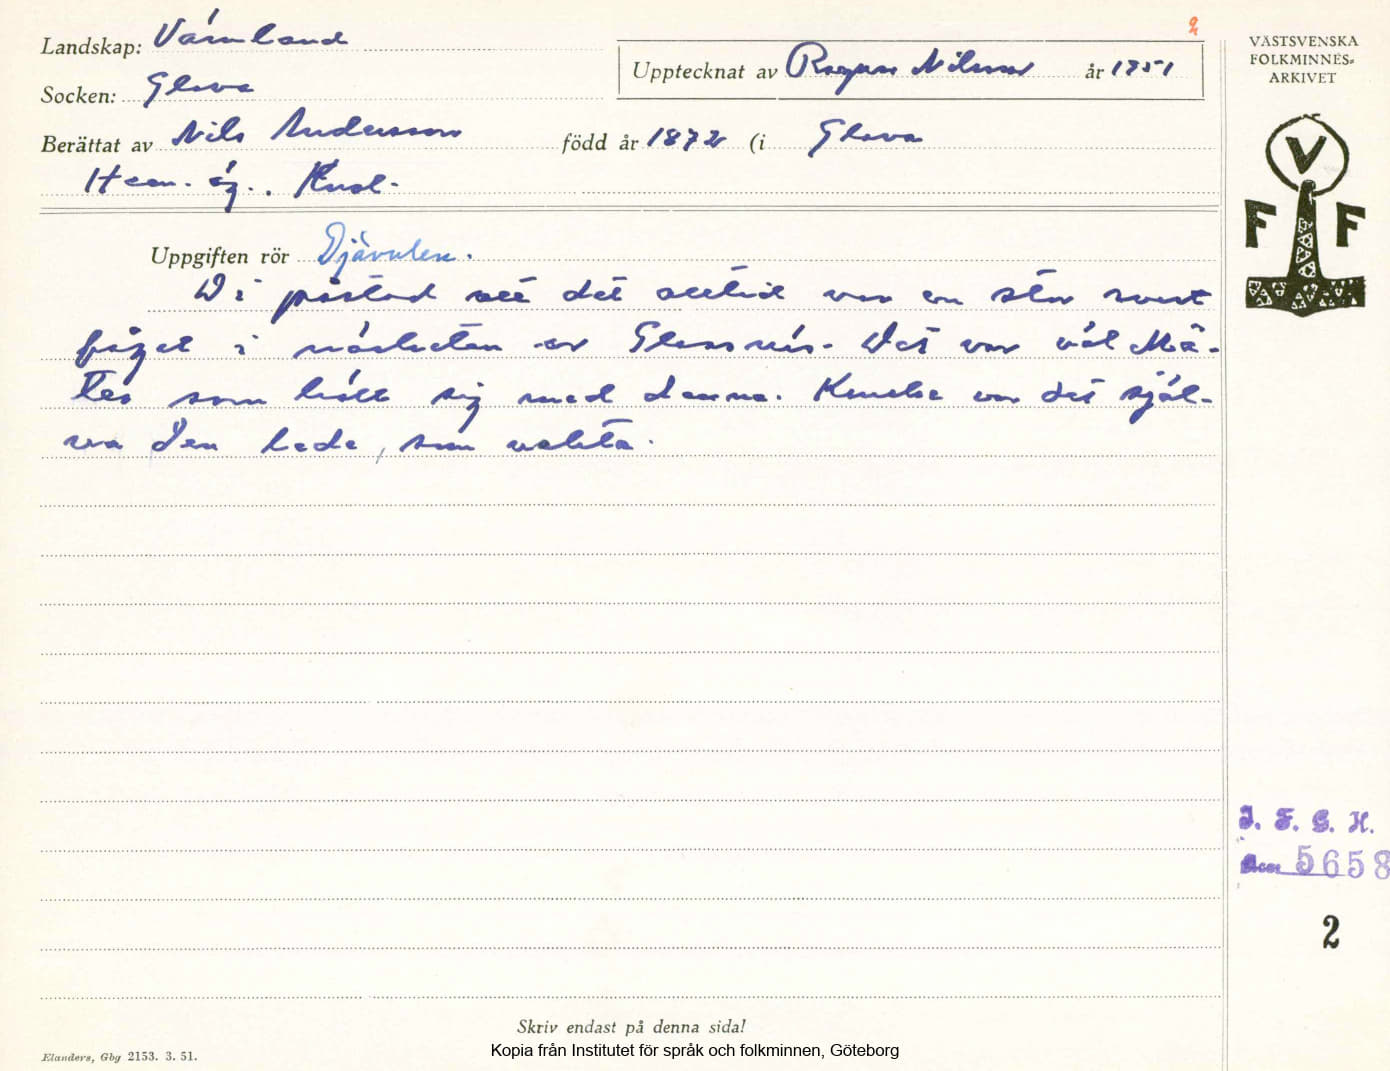 Landskap: Värmland
Socken: Glava
Upptecknat av Ragnar Nilsson år 1951
Berättat av Nils Andersson född år 1872 (i Glava
Hem. äg.
Uppgiften rör Djävulen.
Di påstod att det alltid var en stor svart
fågel i närheten av Glasnäs. Det var väl
som höll sig med denna. Kanske var det själ-
va Den lede, som vakta.
Skriv endast på denna sida!
Elanders, Gbg 2153. 3. 51.
Kopia från Institutet för språk och folkminnen, Göteborg
2
VÄSTSVENSKA
FOLKMINNES-
ARKIVET
V
F F
I. F. G. H.
Acc 5658
2